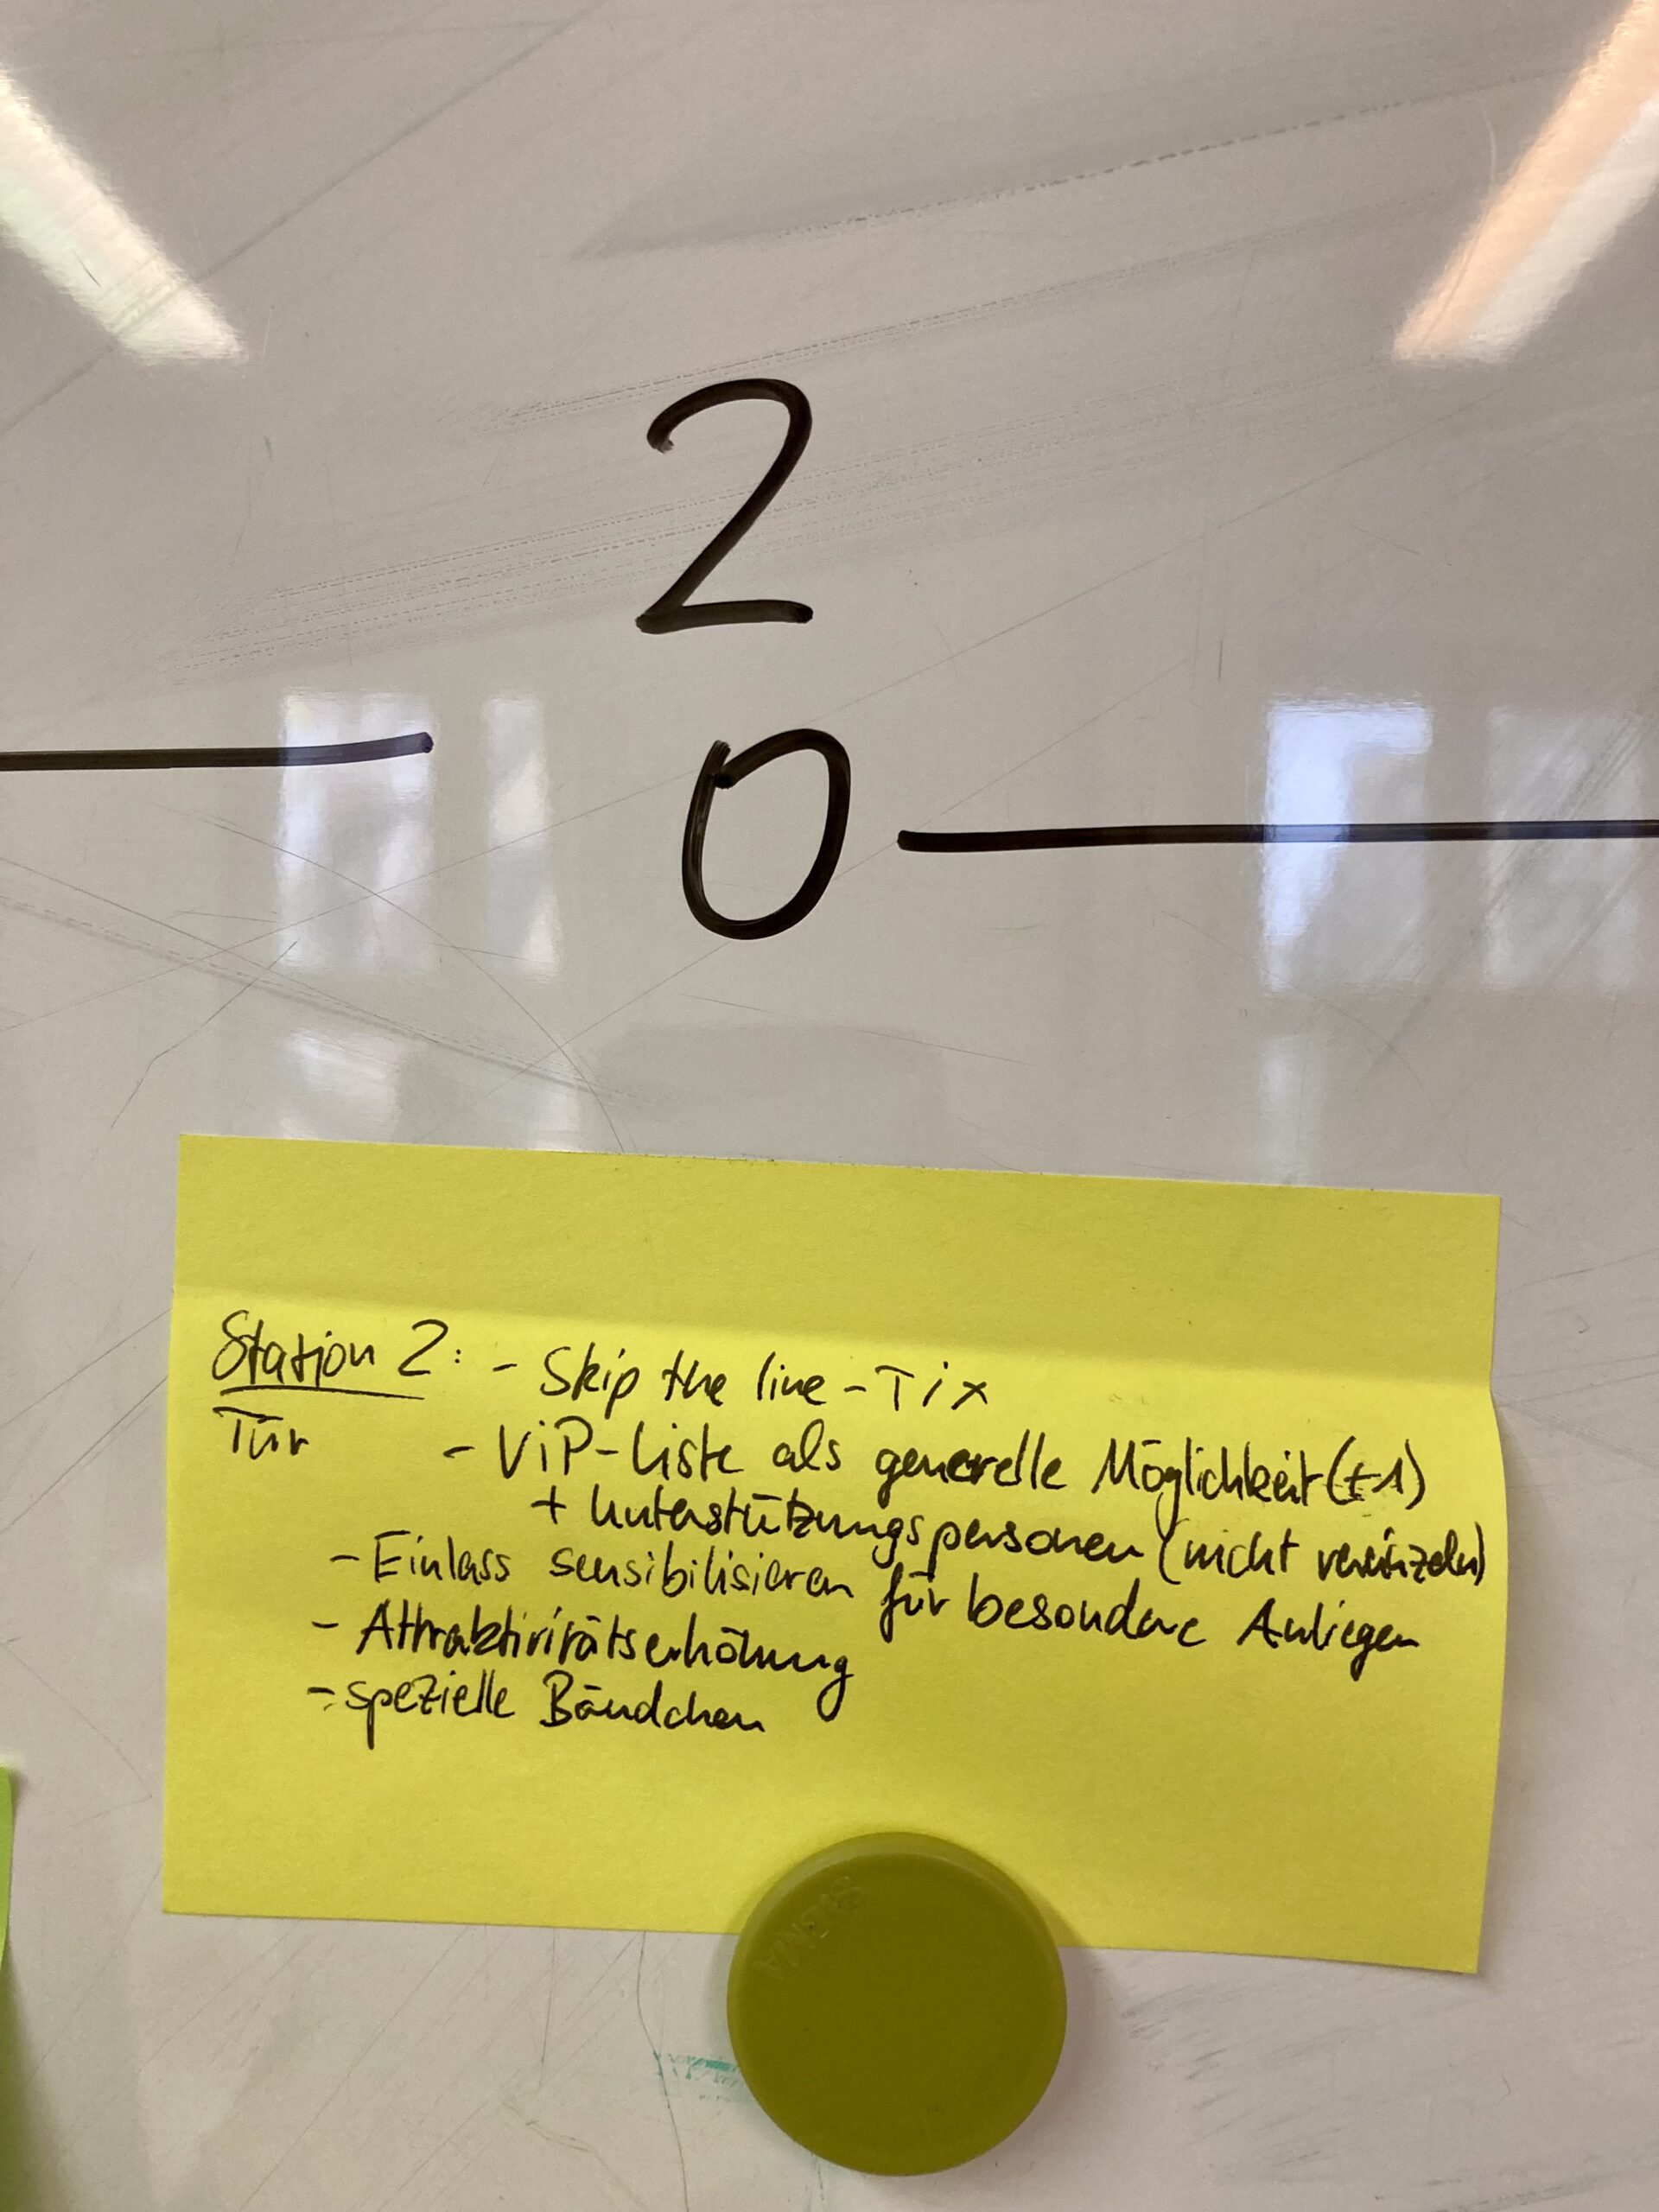 2
0
Station 2: - Skip the line - Tix
Tür - ViP-Liste als generelle Möglichkeit (±1)
+ Unterstützungspersonen (nicht vereinzeln)
- Einlass sensibilisieren für besondere Anliegen
- Attraktivitätserhöhung
- spezielle Bändchen
SIGMA